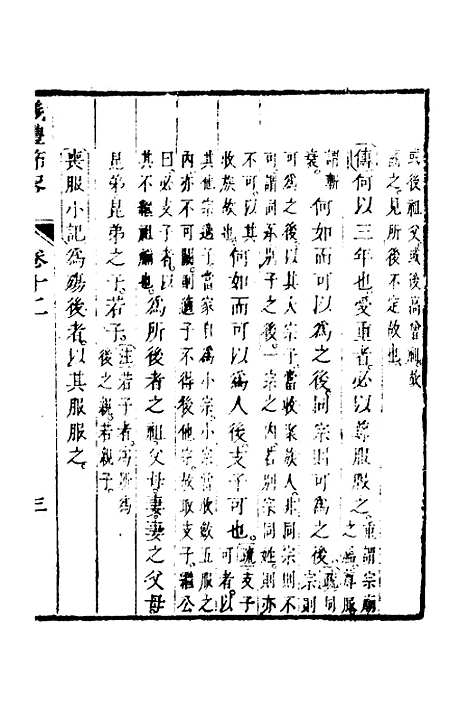 或後祖父或後高曾祖故
闕之見所後不定故也
傳何以三年也受重者必以尊服服之重謂宗廟尊服
謂斬衰何如而可為之後同宗則可為之後疏同宗則
可為之後以其大宗子當收聚族人非同宗則不
可謂同承別子之後一宗之內若別宗同姓則亦
不可以其收族故也何如而可以為人後支子可也疏支子可者以
其他家適子當家自為小宗小宗當收斂五服之
內亦不可闕則適子不得後他宗故取支子繼公
曰必支子者以其不繼祖禰也為所後者之祖父母妻妻之父母
昆弟昆弟之子若子注若子者為所為後之親若親子
喪服小記為殤後者以其服服之
儀禮節畧
卷十二
三